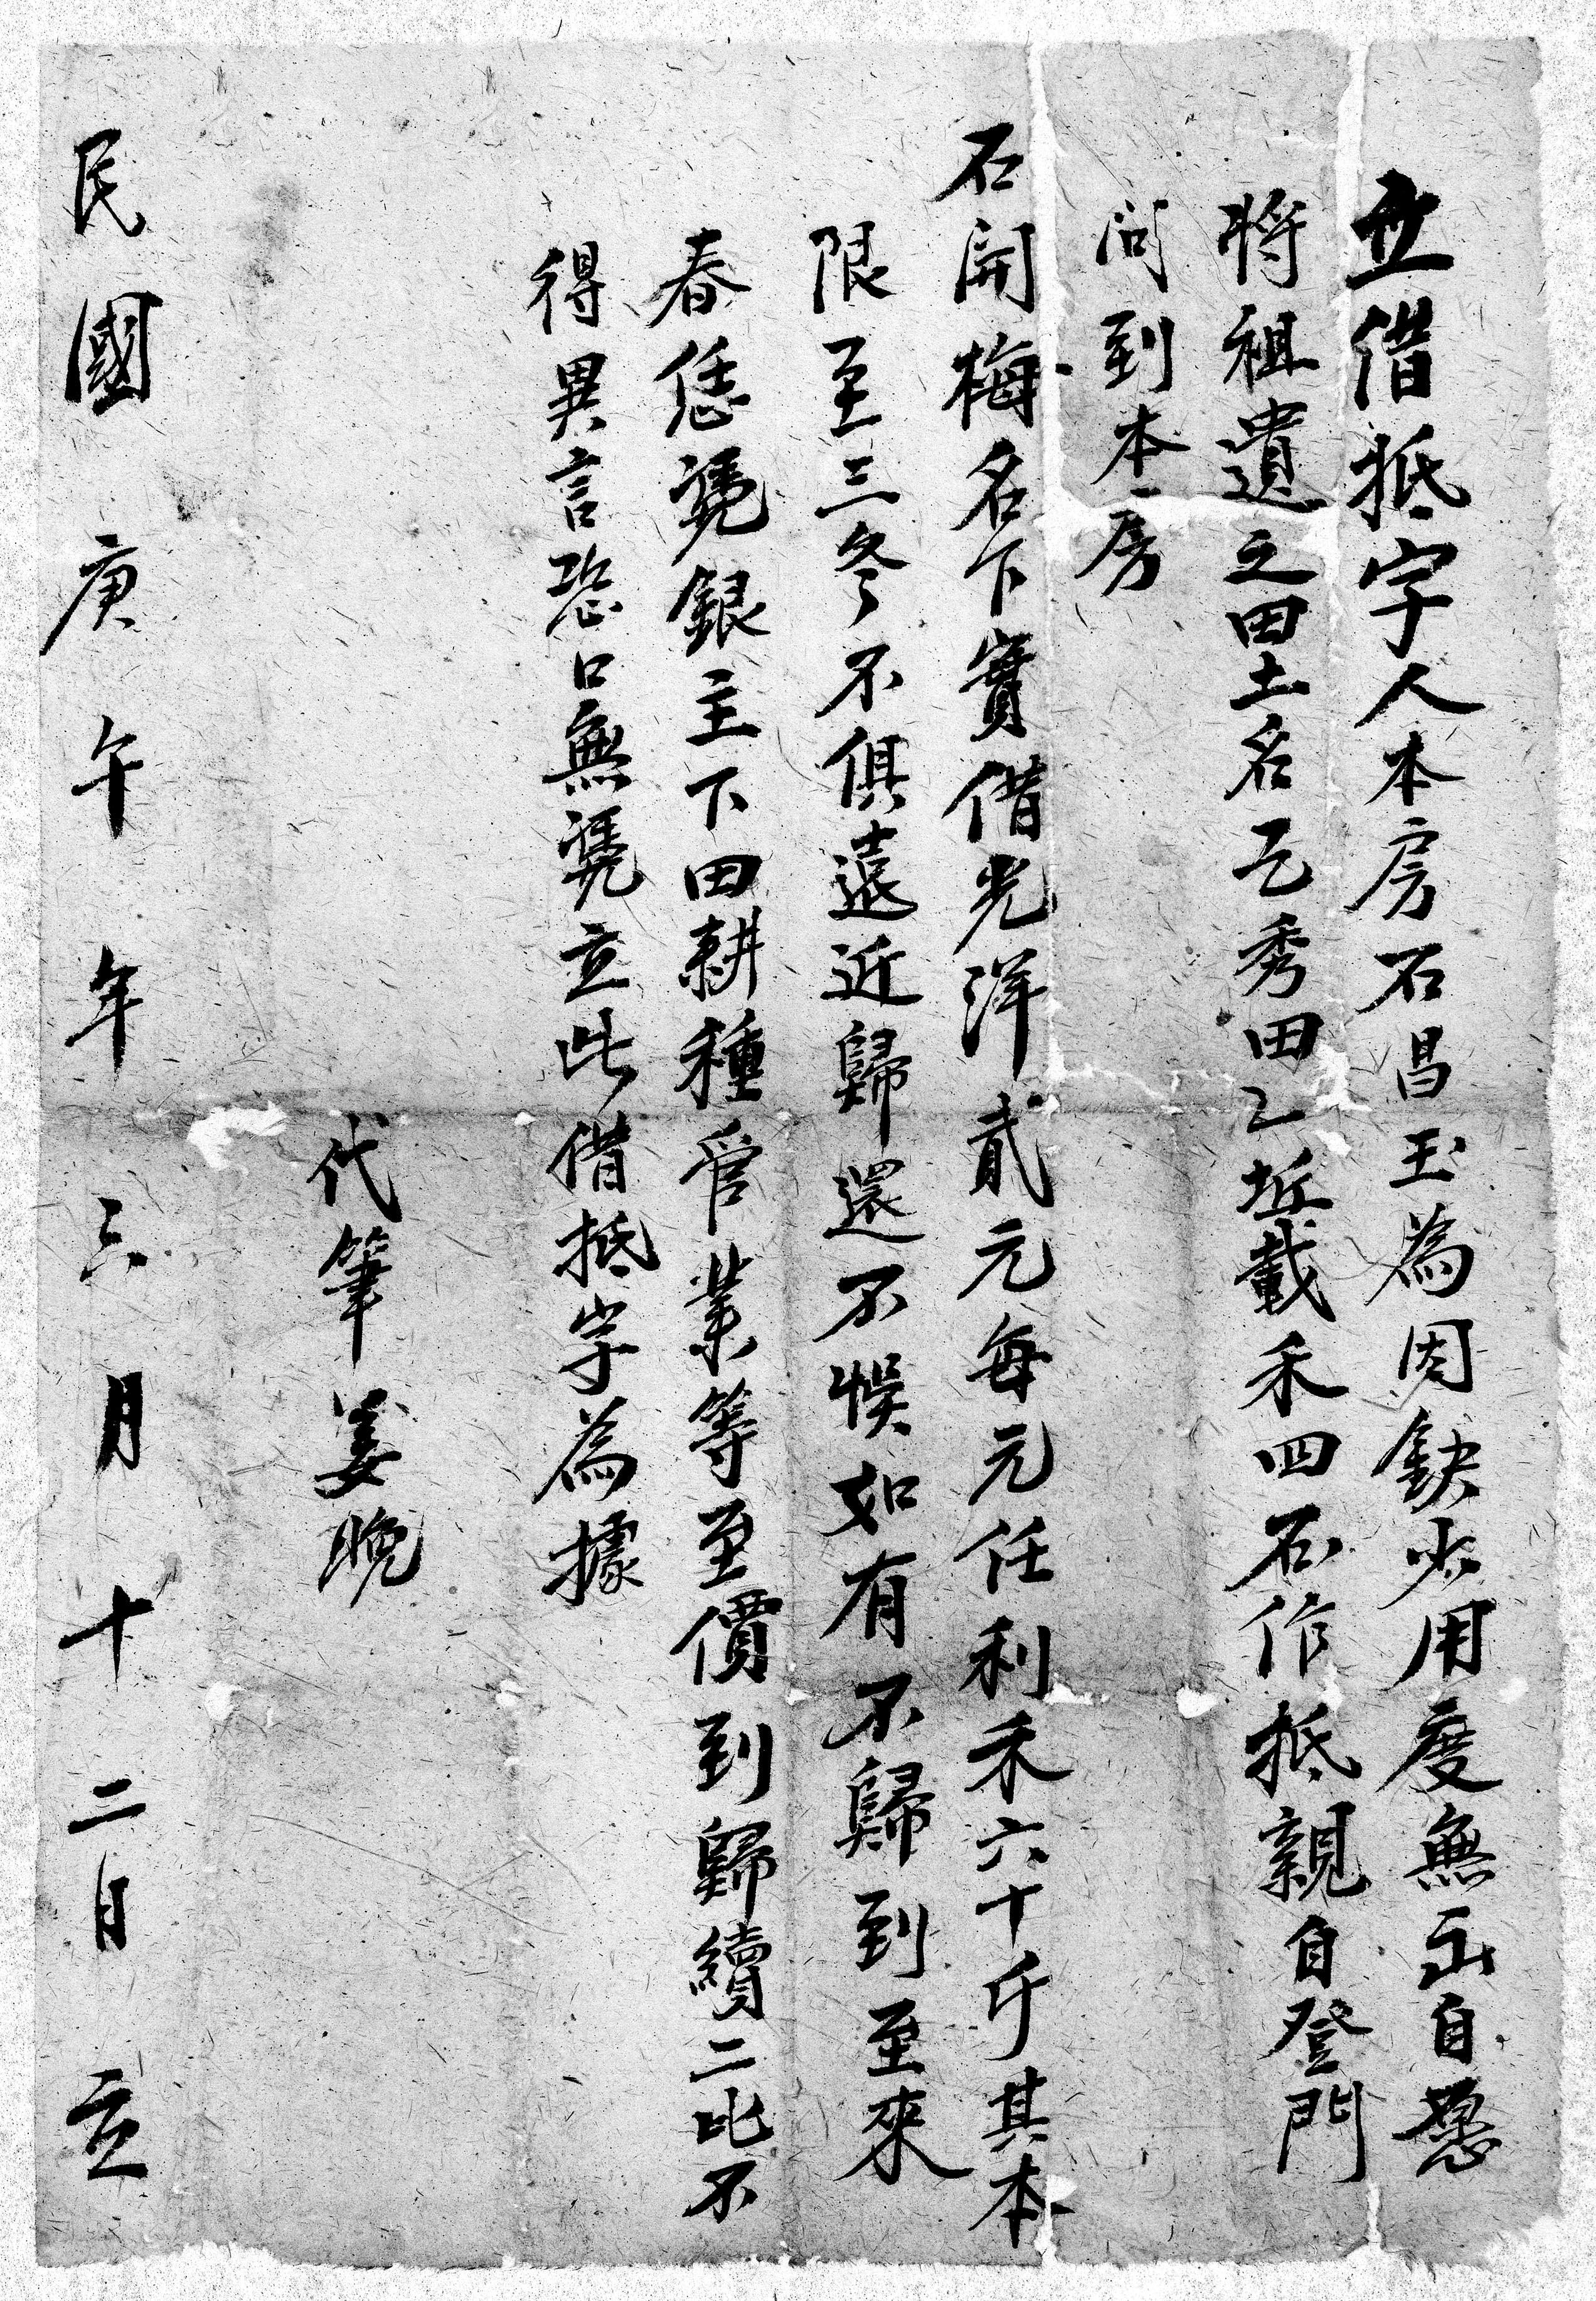 立借抵字人本房石昌玉為因缺少用度無出自愿
將祖遺之田土名乙秀田乙坵載禾四石作抵親自登門
问到本房
石開梅名下實借光洋貳元每元任利禾六十斤其本
限至三冬不俱遠近歸還不悮如有不歸到至來
春恁凴銀主下田耕種管業等至價到歸續二比不
得異言恐口無凴立此借抵字為據
代筆姜晚
民國庚午年三月十二日立